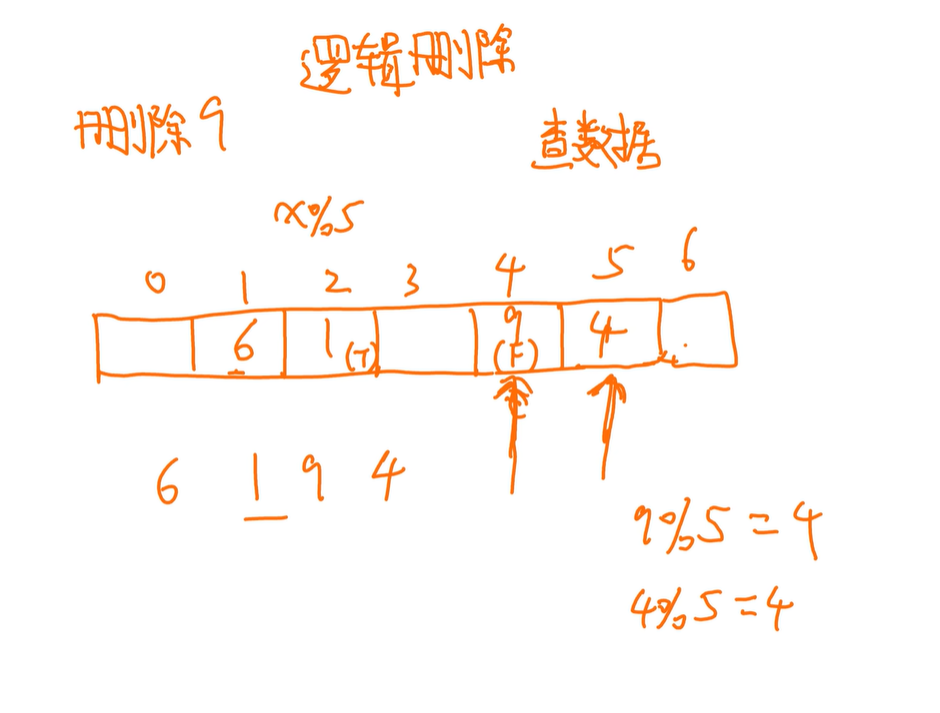 逻辑删除
删除9
查数据
x%5
0 1 2 3 4 5 6
6 1(T) 9(F) 4
6 1 9 4
9%5=4
4%5=4